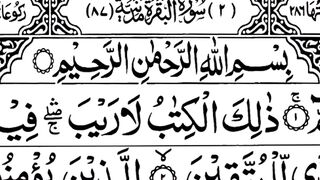 (٢) سُوْرَةُ الْبَقَرَةِ مَدَنِيَّةٌ (٨٧)
بِسْمِ اللّٰهِ الرَّحْمٰنِ الرَّحِيْمِ
ذٰلِكَ الْكِتٰبُ لَا رَيْبَ ۛ فِيْ
لِّلْمُتَّقِيْنَ ۝٢ الَّذِيْنَ يُؤْمِنُ